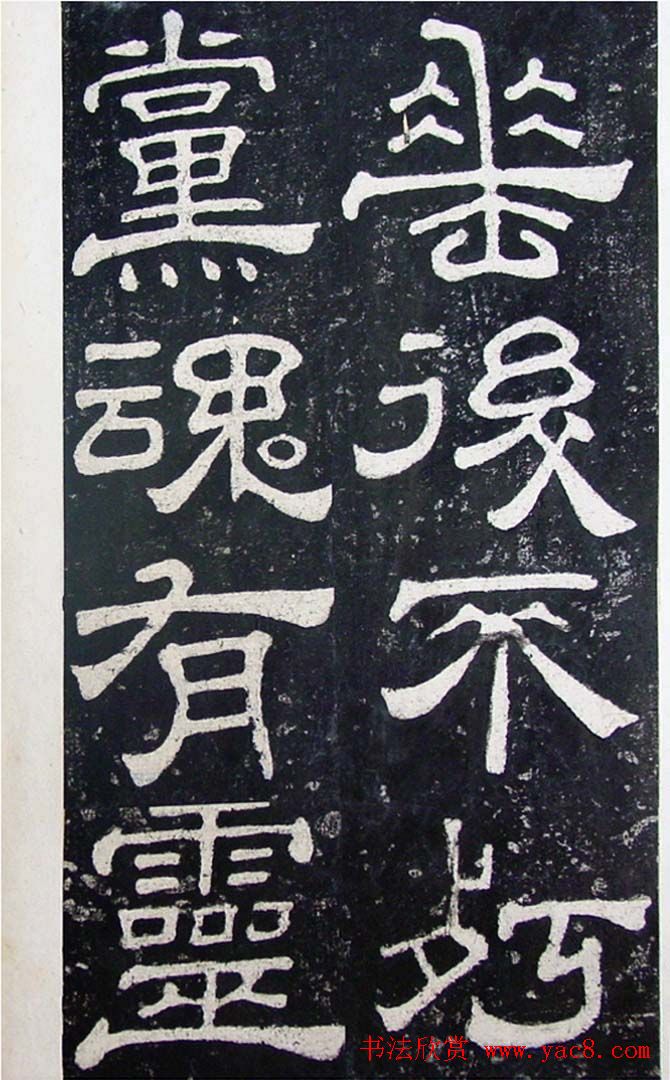 垂後不㱙
黨魂有靈
书法欣赏 www.yac8.com